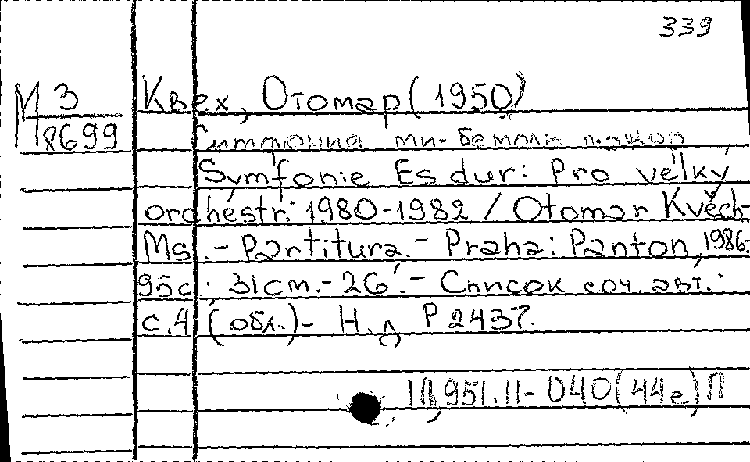 339
М 3
8699
Квех, Отомар (1950)
Симфония ми-бемоль мажор
Symfonie Es dur: Pro velký
orchestr: 1980-1982 / Otomar Kvěch-
Ms. - Partitura. - Praha: Panton, 1986.
95с.: 31cm. - 26'. - Список соч. авт.:
с. 4 (обл.) - Н. д. P 2437.
951.11-040(44e) П